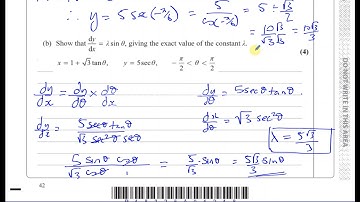 ∴ y = 5 sec(-π/6) = 5/cos(-π/6) = 5 ÷ √3/2
= 10√3/√3√3 = 10√3/3
(b) Show that dy/dx = λ sin θ, giving the exact value of the constant λ.
(4)
x = 1 + √3 tan θ, y = 5 sec θ, -π/2 < θ < π/2
dy/dx = dy/dθ × dθ/dx
dy/dθ = 5 sec θ tan θ
dy/dx = 5 sec θ tan θ / √3 sec² θ
dx/dθ = √3 sec² θ
λ = 5√3/3
= 5/√3 · sin θ = 5√3/3 sin θ
42
DO NOT WRITE IN THIS AREA